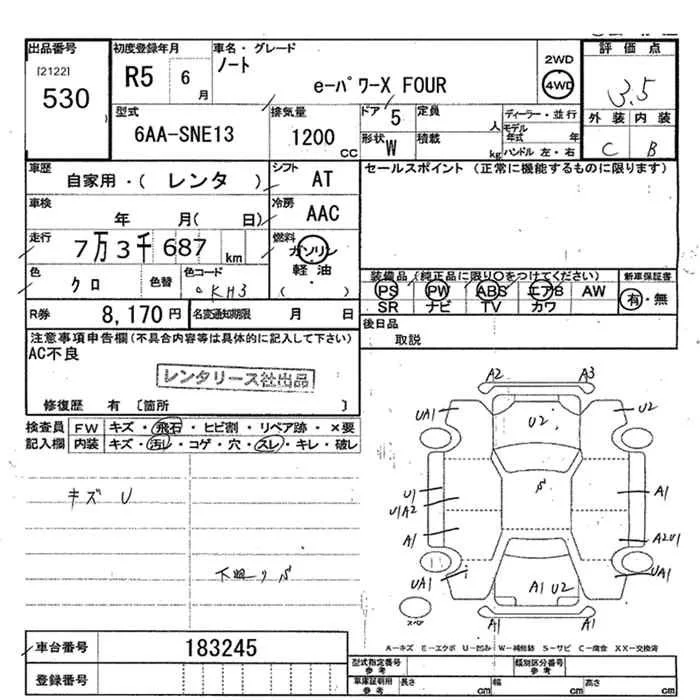 出品番号
[2122]
530
初度登録年月
R5 6月
車名・グレード
ノート
e-パワーX FOUR
2WD
4WD
評価点
3.5
外装 内装
C B
型式
6AA-SNE13
排気量
1200 CC
ドア 5
形状 W
定員 人
積載 kg
ディーラー・並行
モデル年式 年
ハンドル 左・右
車歴
自家用・( レンタ )
シフト AT
セールスポイント (正常に機能するものに限ります)
車検
年 月( 日)
冷房 AAC
走行
7万3千687 km
燃料
ガソリン
軽油・
( )
色
クロ
色替
色コード
KH3
装備品 (純正品に限り○をつけてください)
PS PW ABS エアB AW
SR ナビ TV カワ
新車保証書
有・無
R券 8,170円
名変通知期限 月 日
後日品
取説
注意事項申告欄(不具合内容等は具体的に記入して下さい)
AC不良
レンタリース社出品
修復歴 有 〔箇所 〕
検査員記入欄
FW キズ・飛石・ヒビ割・リペア跡・×要
内装 キズ・汚レ・コゲ・穴・スレ・キレ・破レ
キズ U
A2 A3
UA1 U2 U2
U1
U1A2
A1
A1
A2U1
UA1 A1 U2 UA1
A1 A1
A-キズ E-エクボ U-凹み W-補修跡 S-サビ C-腐食 XX-交換済
車台番号 183245
登録番号
型式指定番号
参考
類別区分番号
参考
車庫証明用
参考
長さ cm 幅 cm 高さ cm